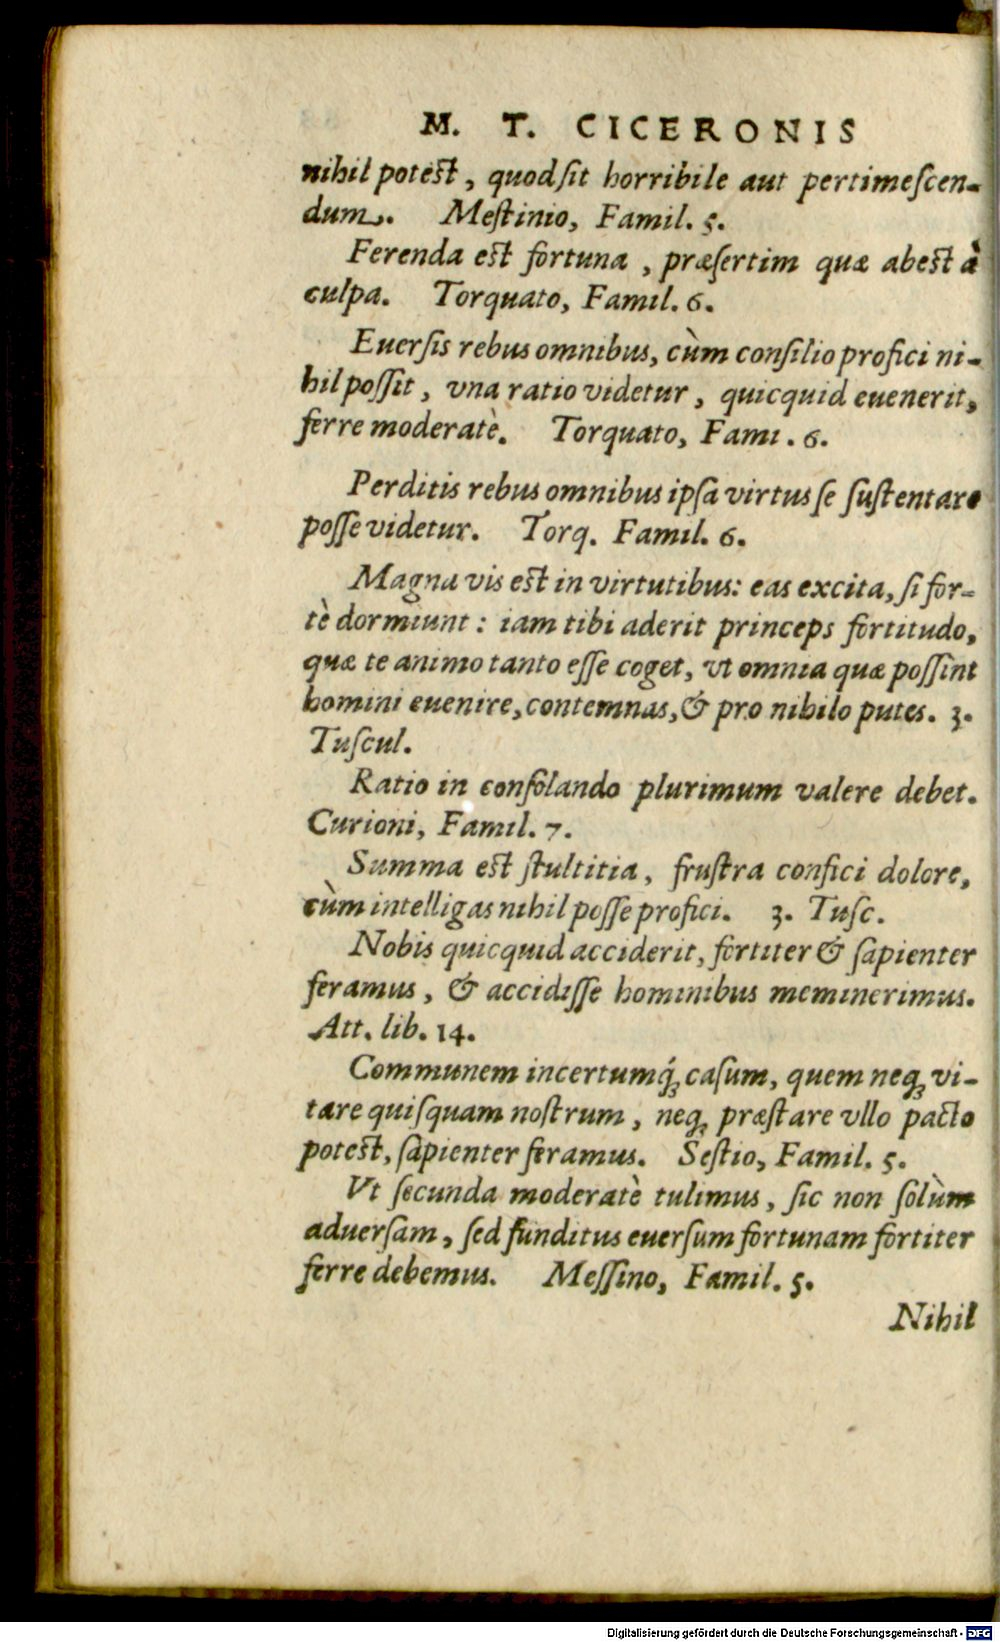 M. T. CICERONIS
nihil potest, quod sit horribile aut pertimeſcen-
dum. Meſtinio, Famil. 5.
Ferenda est fortuna, præſertim quæ abest à
culpa. Torquato, Famil. 6.
Euerſis rebus omnibus, cùm conſilio profici ni-
hil poſſit, vna ratio videtur, quicquid euenerit,
ferre moderatè. Torquato, Fami . 6.
Perditis rebus omnibus ipſa virtus ſe ſuſtentare
poſſe videtur. Torq. Famil. 6.
Magna vis est in virtutibus: eas excita, ſi for-
tè dormiunt: iam tibi aderit princeps fortitudo,
quæ te animo tanto eſſe coget, vt omnia quæ poſſint
homini euenire, contemnas, & pro nihilo putes. 3.
Tuſcul.
Ratio in conſolando plurimum valere debet.
Curioni, Famil. 7.
Summa est ſtultitia, fruſtra confici dolore,
cùm intelligas nihil poſſe profici. 3. Tuſc.
Nobis quicquid acciderit, fortiter & ſapienter
feramus, & accidiſſe hominibus meminerimus.
Att. lib. 14.
Communem incertumq́ꝫ caſum, quem neqꝫ vi-
tare quiſquam noſtrum, neqꝫ præſtare vllo pacto
potest, ſapienter feramus. Seſtio, Famil. 5.
Vt ſecunda moderatè tulimus, ſic non ſolùm
aduerſam, ſed funditus euerſum fortunam fortiter
ferre debemus. Meſſino, Famil. 5.
Nihil
Digitalisierung gefördert durch die Deutsche Forschungsgemeinschaft - DFG